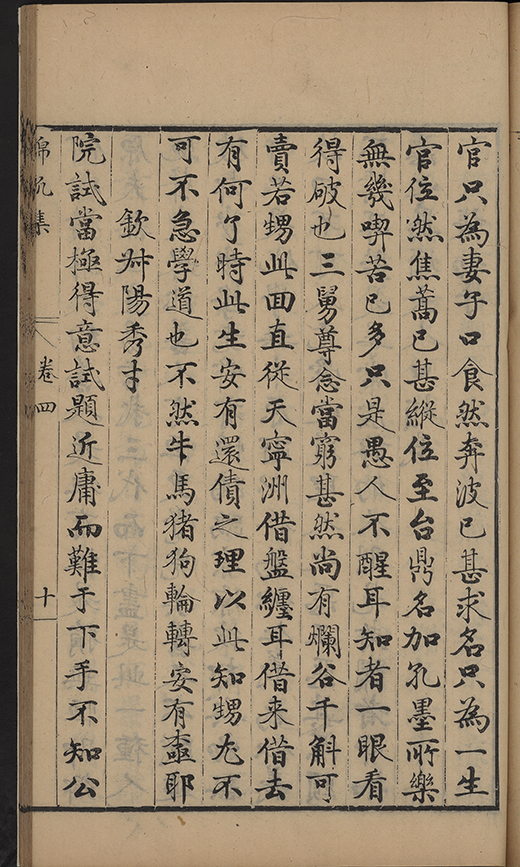 官只為妻子口食然奔波已甚求名只為一生
官位然焦蒿已甚縱位至台鼎名加孔墨所樂
無幾喫苦已多只是愚人不醒耳知者一眼看
得破也三舅尊念當窮甚然尚有爛谷千斛可
賣若甥此回直從天寧洲借盤纏耳借来借去
有何了時此生安有還債之理以此知甥尤不
可不急學道也不然牛馬猪狗輪轉安有耶
欽叔陽秀才
院試當極得意試題近庸而難于下手不知公
錦帆集
卷四
十